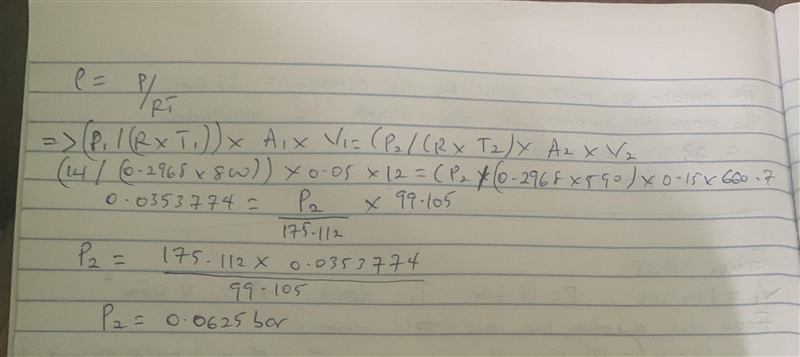 ρ = P/RT
=> (P₁/(R×T₁)) × A₁ × V₁ = (P₂/(R×T₂) × A₂ × V₂
(14/(0.2968×800)) × 0.05 × 12 = (P₂/(0.2968×590) × 0.15×660.7
0.0353774 = P₂/175.112 × 99.105
P₂ = 175.112 × 0.0353774/99.105
P₂ = 0.0625 bar